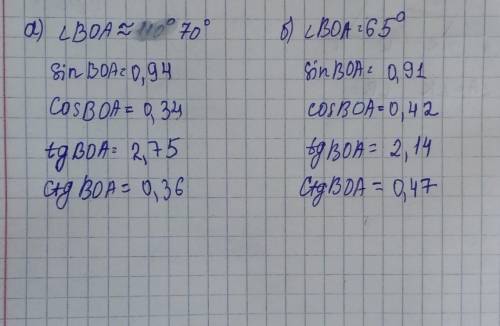 а) ∠BOA ≈ 70°
sin BOA = 0,94
cos BOA = 0,34
tg BOA = 2,75
ctg BOA = 0,36
б) ∠BOA = 65°
sin BOA = 0,91
cos BOA = 0,42
tg BOA = 2,14
ctg BOA = 0,47